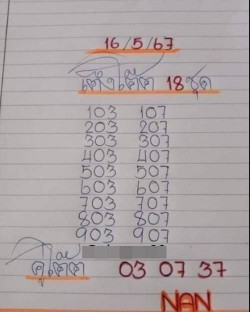 16/5/67
18 ชุด
103 107
203 207
303 307
403 407
503 507
603 607
703 707
803 807
903 907
03 07 37
NAN